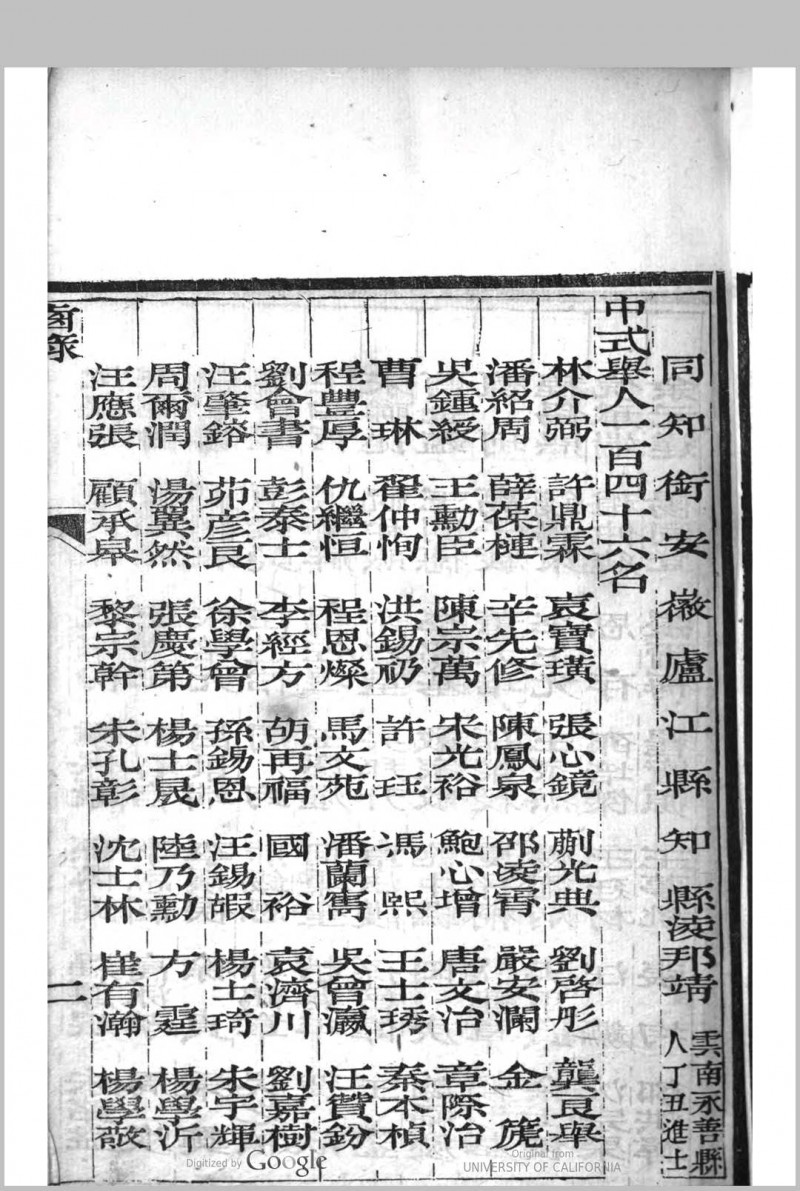 同知銜安徽廬江縣知縣凌邦靖 雲南永善縣人丁丑進士
中式舉人一百四十六名
林介弼 許鼎霖 袁寶璜 張心鏡 蒯光典 劉啓彤 龔良舉
潘紹周 薛葆槤 辛先修 陳鳳泉 邵凌霄 嚴安瀾 金箎
吳鍾綬 王勳臣 陳宗萬 宋光裕 鮑心增 唐文治 章際治
曹琳 翟仲恂 洪錫礽 許珏 馮熙 王士琇 秦本楨
程豐厚 仇繼恒 程恩燦 馬文苑 潘蘭寯 吳曾瀛 汪贊鈖
劉會書 彭泰士 李經方 胡再福 國裕 袁濟川 劉嘉樹
汪肇鎔 茆彥良 徐學曾 孫錫恩 汪錫嘏 楊士琦 朱宇輝
周爾潤 湯翼然 張慶第 楊士晟 陸乃勳 方霆 楊學沂
汪應張 顧承皋 黎宗幹 朱孔彰 沈士林 崔有瀚 楊學敬
二
Digitized by Google
Original from
UNIVERSITY OF CALIFORNIA